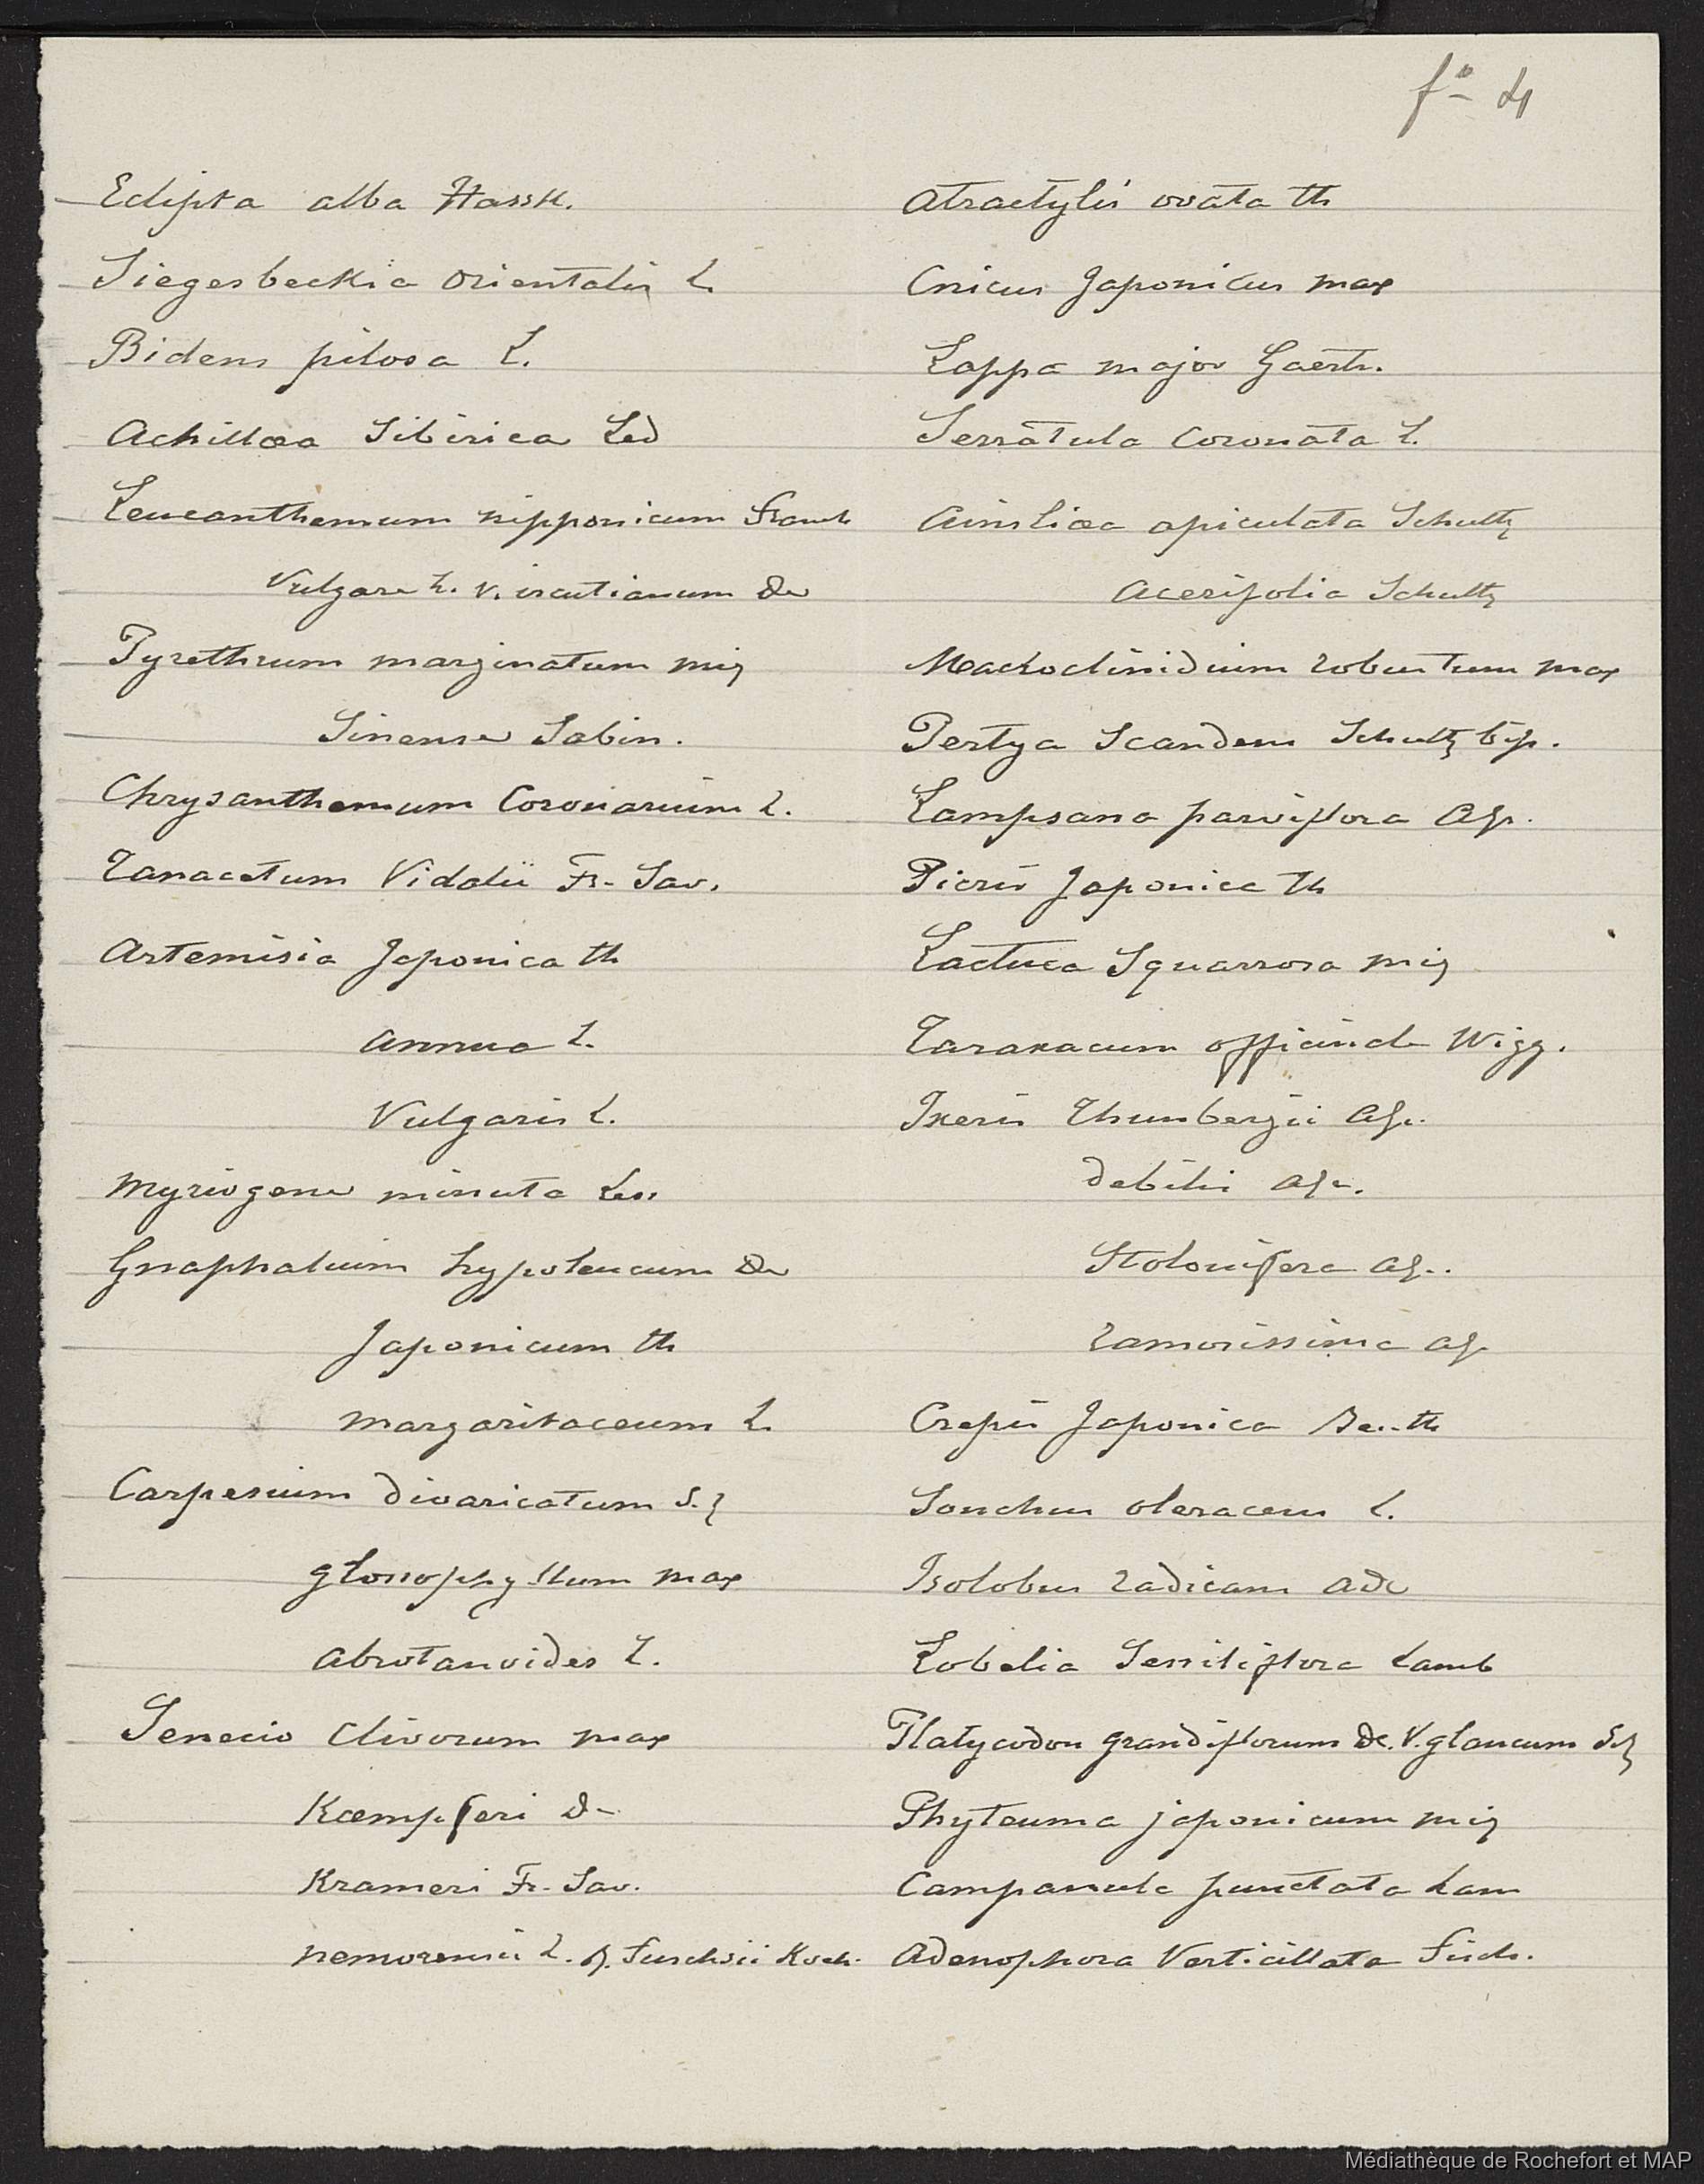 fº 4
Eclipta alba Hassk.
Siegesbeckia Orientalis L.
Bidens pilosa L.
Achillæa Sibirica Led
Leucanthemum nipponicum Franch
Vulgare L. v. ircutianum Dc
Pyrethrum marginatum miq
Sinense Sabin.
Chrysanthemum Coronarium L.
Tanacetum Vidalii Fr. Sav.
Artemisia Japonica th
Annua L.
Vulgaris L.
Myriogene minuta Less
Gnaphalium hypoleucum Dc
Japonicum th
margaritaceum L.
Carpesium divaricatum S.Z
glossophyllum max
Abrotanoides L.
Senecio Clivorum max
Kæmpferi D-
Krameri Fr. Sav.
nemorensis L. β. Fuschsii Koch.
Atractylis ovata th
Cnicus Japonicus max
Lappa major Gaertn.
Serratula Coronata L.
Ainsliæa apiculata Schultz
Acerifolia Schultz
Mackoclinidium robustum max
Pertya Scandens Schultz bip.
Lampsana parviflora AGr.
Picris Japonica th
Lactuca Squarrosa miq
Taraxacum officinale Wigg.
Ixeris Thunbergii AGr.
debilis AGr.
Stolonifera AGr.
ramosissima AGr
Crepis Japonica Benth
Sonchus oleraceus L.
Isolobus radicans ADc
Lobelia Sessiliflora Lamb
Platycodon grandiflorum Dc. V. glaucum S.Z
Phyteuma japonicum miq
Campanula punctata Lam
Adenophora Verticillata Fisch.
Médiathèque de Rochefort et MAP